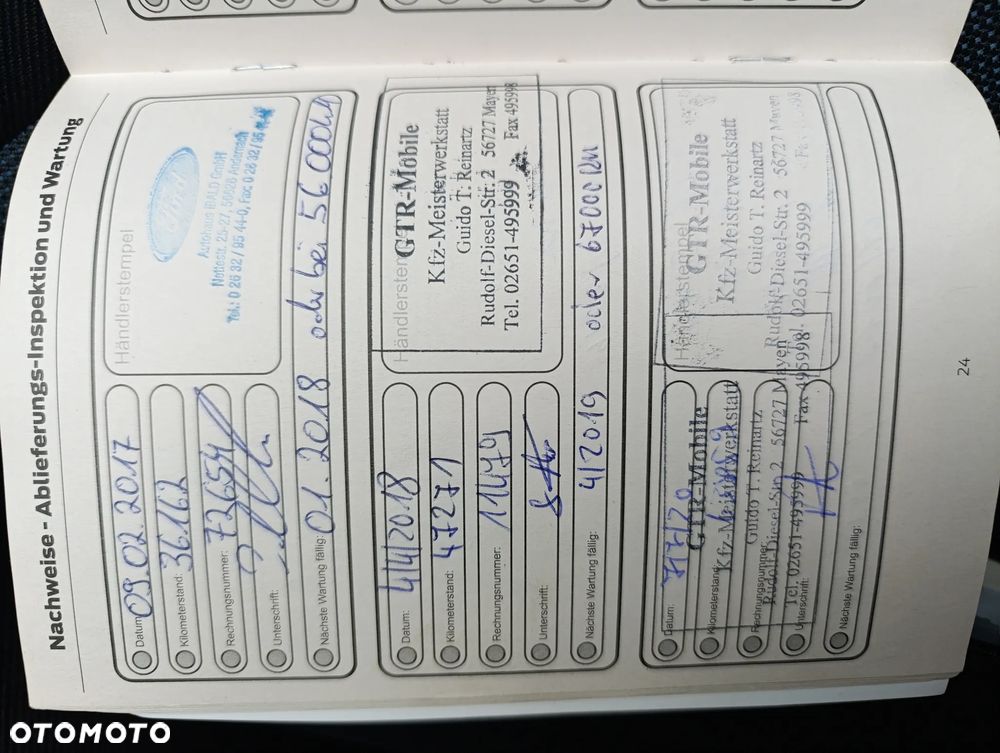 Nachweise - Ablieferungs-Inspektion und Wartung
Datum: 09.02.2017
Kilometerstand: 36.162
Rechnungsnummer: 72654
Unterschrift:
Nächste Wartung fällig: 01.2018 oder bei 56000km
Händlerstempel
Autohaus WALD GmbH
Nettestr. 25-27, 56626 Andernach
Tel.: 0 26 32 / 95 44-0, Fax: 0 26 32 / 95
Datum: 4/4/2018
Kilometerstand: 47271
Rechnungsnummer: 11479
Unterschrift:
Nächste Wartung fällig: 4/2019 oder 67000 km
Händlerstempel
GTR-Mobile
Kfz-Meisterwerkstatt
Guido T. Reinartz
Rudolf-Diesel-Str. 2 56727 Mayen
Tel. 02651-495999 Fax 495998
Datum:
Kilometerstand:
Rechnungsnummer:
Unterschrift:
Nächste Wartung fällig:
Händlerstempel
GTR-Mobile
Kfz-Meisterwerkstatt
Guido T. Reinartz
Rudolf-Diesel-Str. 2 56727 Mayen
Tel. 02651-495999
GTR-Mobile
Kfz-Meisterwerkstatt
Guido T. Reinartz
Rudolf-Diesel-Str. 2 56727 Mayen
Tel. 02651-495999 Fax 495998
24
OTOMOTO